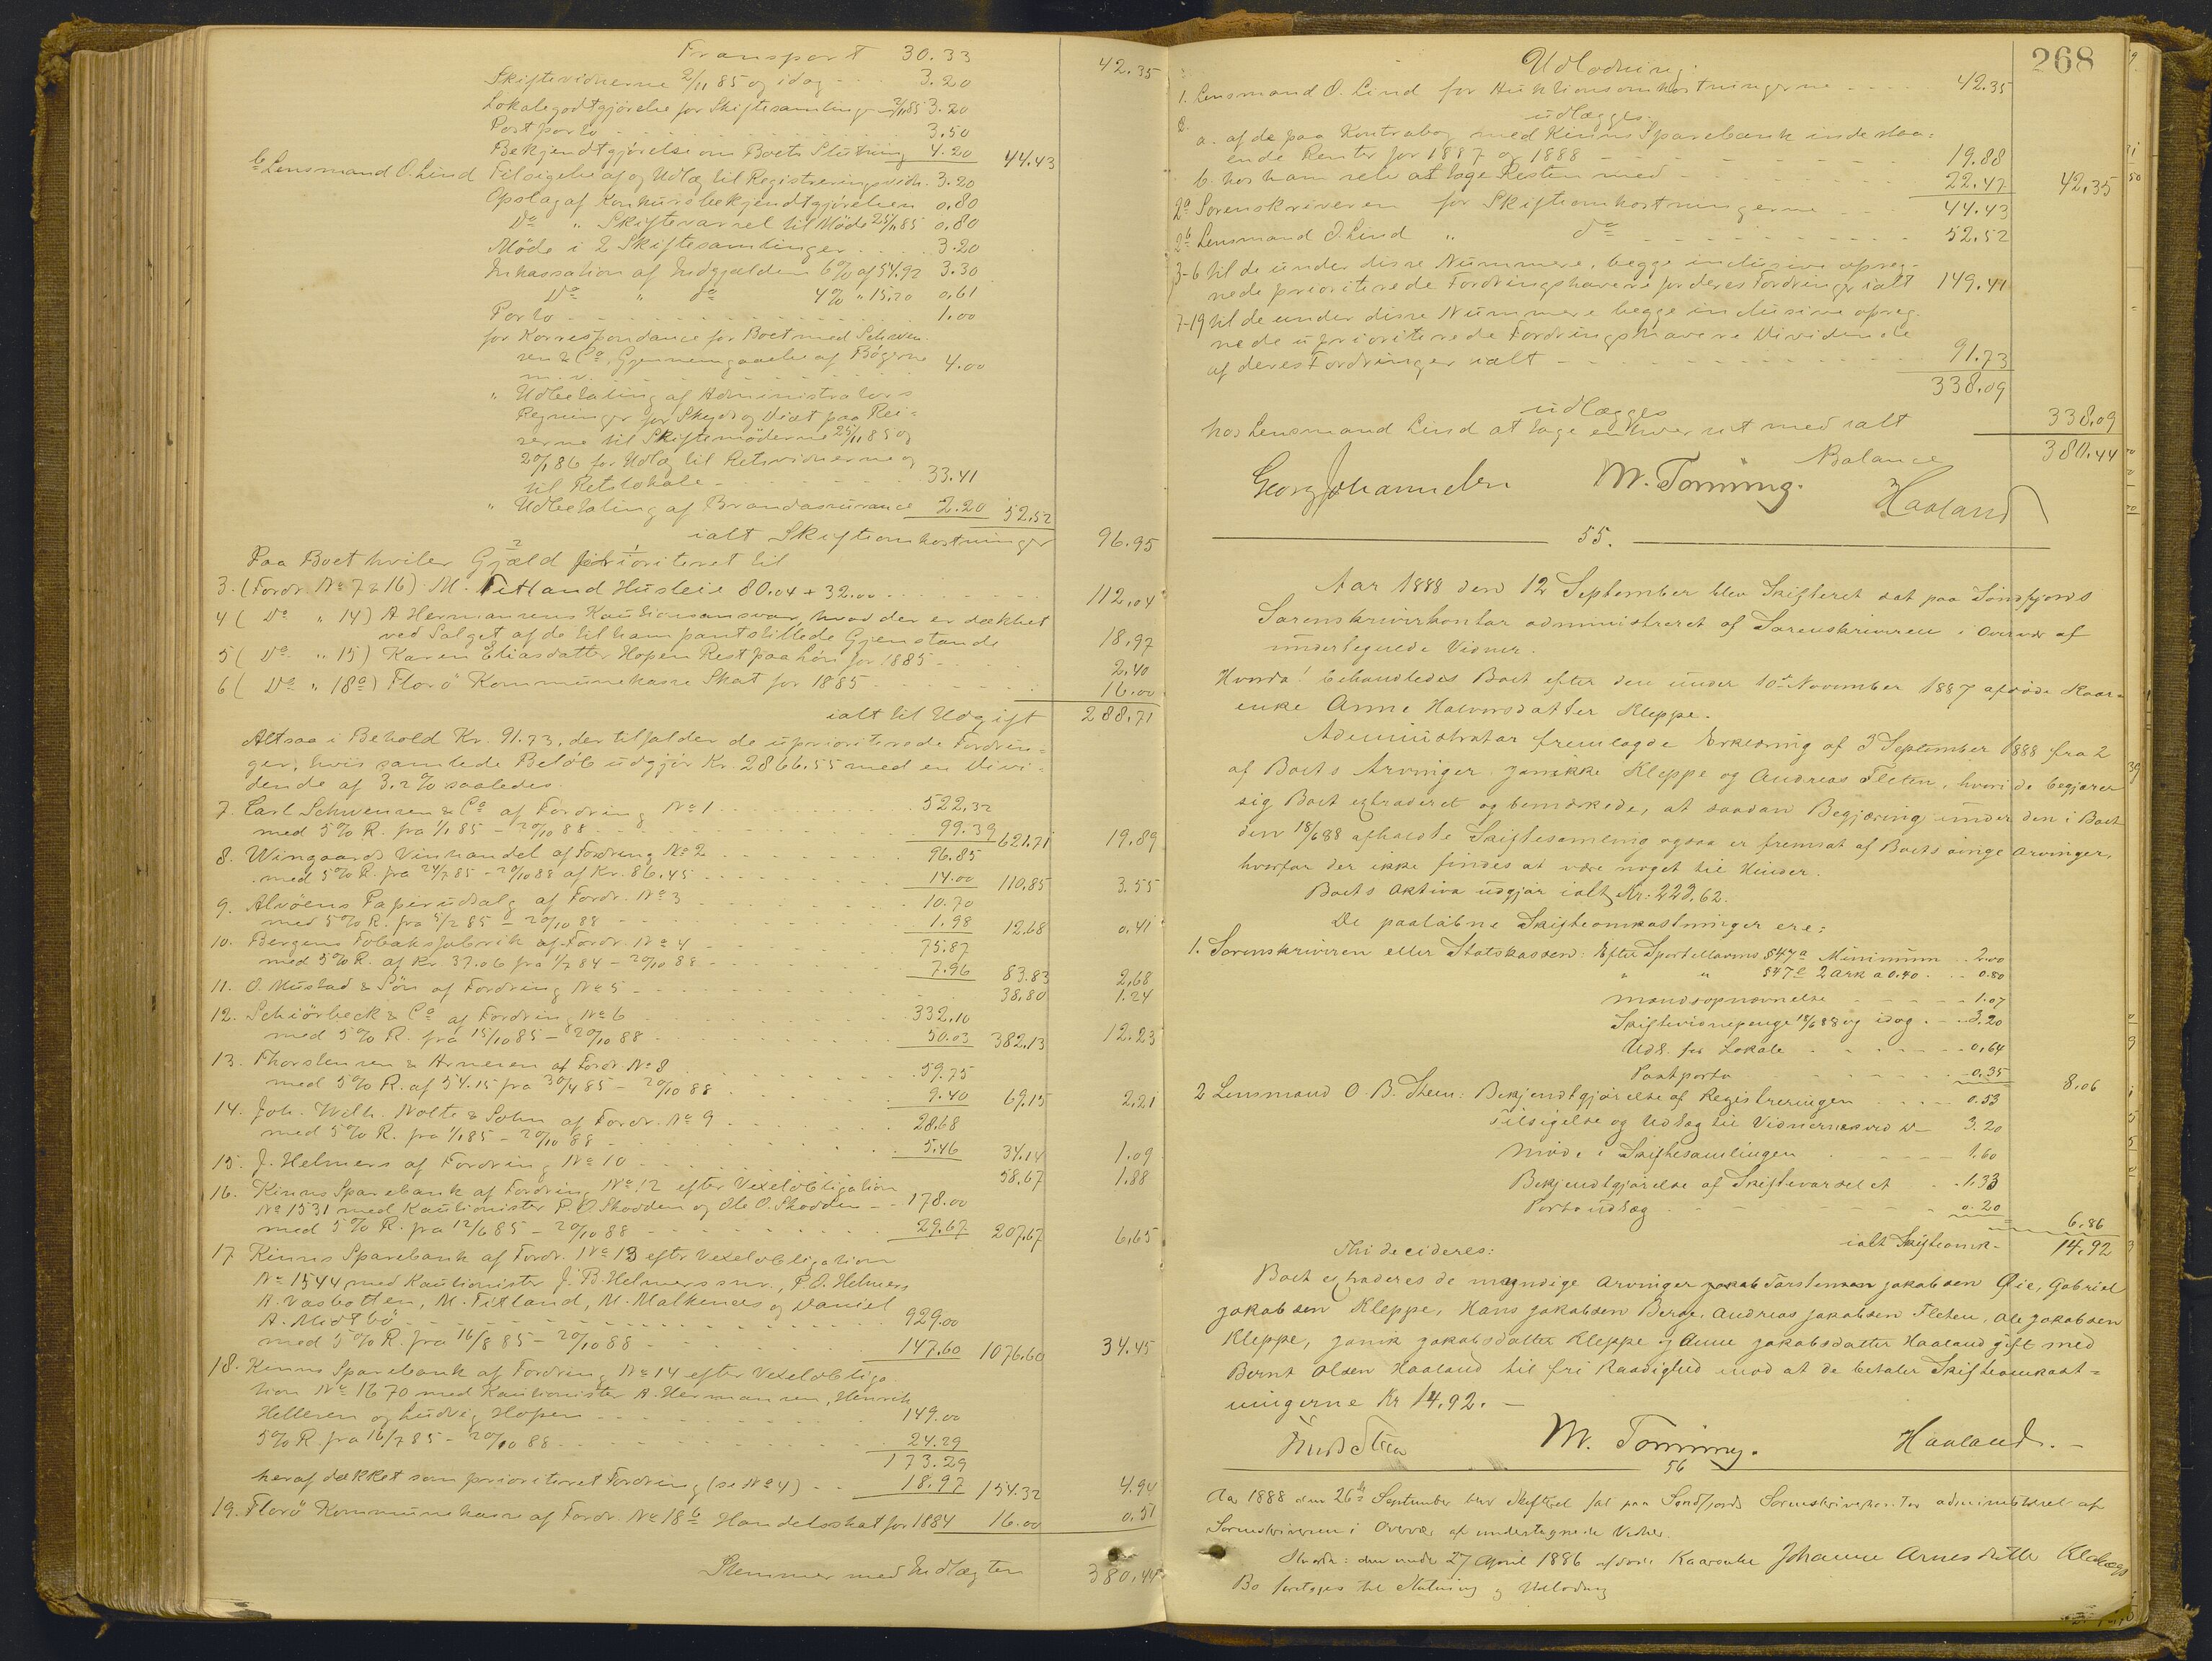 Transport 30.33 42.35
Skiftevidnerne 2/11 85 og idag 3.20
Lokalegodtgjørelse for Skiftesamlinger 2/11 85 3.20
Postporto 3.50
Bekjendtgjørelse om Boets Slutning 4.20 44.43
b Lensmand O. Lind Tilsigelse af og Udlæg til Registreringsvidn. 3.20
Opslag af Konkursbekjendtgjørelsen 0.80
Do " Skiftevarsel til Møde 25/11 85 0.80
Møde i 2 Skiftesamlinger 3.20
Inkassation af Indgjælden 6% af 54.92 3.30
Do " do 4% " 15.20 0.61
Porto 1.00
for Korrespondance for Boet med Schwen-
sen & Co, Gjennemgaaelse af Bøgerne
m.v. 4.00
" Udbetaling af Administrators
Regninger for Skyds og Diæt paa Rei-
serne til Skiftemøderne 25/11 85 og
20/1 86 for Udlæg til Retsvidnerne og
til Retslokale 33.41
" Udbetaling af Brandassurance 2.20 52.52
ialt Skifteomkostninger 96.95
Paa Boet hviler Gjæld prioriteret til
3. (Fordr. No 7 & 16) M. Fitland Husleie 80.04 + 32.00 112.04
4 ( Do " 14) A Hermansens Kautionsansvar, hvad der er dækket
ved Salget af de til ham pantstillede Gjenstande 18.97
5 ( Do " 15) Karen Eliasdatter Hopen Rest paa Løn for 1885 2.40
6 ( Do " 18a) Florö Kommunekasse Skat for 1885 16.00
ialt til Udgift 288.71
Altsaa i Behold Kr. 91.73, der tilfalder de uprioriterede Fordrin-
ger, hvis samlede Beløb udgjør Kr. 2866.55 med en Divi-
dende af 3.2% saaledes
7. Carl Schwensen & Co af Fordring No 1 522.32
med 5% R. fra 1/1 85 - 20/10 88 99.39 621.71 19.89
8. Wingaards Vinhandel af Fordring No 2 96.85
med 5% R. fra 24/7 85 - 20/10 88 af Kr. 86.45 14.00 110.85 3.55
9. Alvøens Papirudsalg af Fordr. No 3 10.70
med 5% R. fra 5/2 85 - 20/10 88 1.98 12.68 0.41
10. Bergens Tobaksfabrik af Fordr. No 4 75.87
med 5% R. af Kr 37.06 fra 1/7 84 - 20/10 88 7.96 83.83 2.68
11. O. Mustad & Søn af Fordring No 5 38.80 1.24
12. Schiörbeck & Co af Fordring No 6 332.10
med 5% R. fra 15/10 85 - 20/10 88 50.03 382.13 12.23
13. Thorstensen & Arnesen af Fordr. No 8 59.75
med 5% R. af 54.15 fra 30/4 85 - 20/10 88 9.40 69.15 2.21
14. Joh. Wilh. Nolte & Sohn af Fordr. No 9 28.68
med 5% R. fra 1/1 85 - 20/10 88 5.46 34.14 1.09
15. J. Helmers af Fordring No 10 58.67 1.88
16. Kinns Sparebank af Fordring No 12 efter Vexelobligation
No 1531 med Kautionister P. O. Skodden og Ole O. Skodden 178.00
med 5% R. fra 12/6 85 - 20/10 88 29.67 207.67 6.65
17 Kinns Sparebank af Fordr. No 13 efter Vexelobligation
No 1544 med Kautionister J. B. Helmers snr., P. A. Helmers
A. Vasbotten, M. Fitland, M. Malkenes og Daniel
A. Midtbö 929.00
med 5% R. fra 16/8 85 - 20/10 88 147.60 1076.60 34.45
18. Kinns Sparebank af Fordring No 14 efter Vexelobliga-
tion No 1670 med Kautionister A. Hermansen, Henrik
Hellesen og Ludvig Hopen 149.00
5% R. fra 16/7 85 - 20/10 88 24.29
173.29
heraf dækket som prioriteret Fordring (se No 4) 18.97 154.32 4.94
19. Florö Kommunekasse af Fordr. No 18b Handelsskat for 1884 16.00 0.51
Stemmer med Indtægten 380.44
268
Udlodning.
1. Lensmand O. Lind for Auktionsomkostningerne 42.35
udlægges
a. af de paa Kontrabog med Kinns Sparebank indestaa-
ende Renter for 1887 og 1888 19.88
b. hos ham selv at tage Resten med 22.47 42.35
2a Sorenskriveren for Skifteomkostningerne 44.43
2b Lensmand O. Lind " do 52.52
3-6 til de under disse Nummere, begge inclusive opreg-
nede prioriterede Fordringshavere for deres Fordringer ialt 149.41
7-19 til de under disse Nummere begge inclusive opreg-
nede uprioriterede Fordringshavere Dividende
af deres Fordringer ialt 91.73
338.09
udlægges
hos Lensmand Lind at tage enhver sit med ialt 338.09
Balance 380.44
Georg Johannesen M. Tonning. Haaland
55.
Aar 1888 den 12 September blev Skifteret sat paa Søndfjords
Sorenskriverkontor administreret af Sorenskriveren i Overvær af
undertegnede Vidner.
Hvorda! behandledes Boet efter den under 10de November 1887 afdøde Kaar-
enke Anne Halvorsdatter Kleppe.
Administrator fremlagde Erklæring af 3 September 1888 fra 2
af Boets Arvinger Jannikke Kleppe og Andreas Fleten, hvori de begjærer
sig Boet extraderet og bemærkede, at saadan Begjæring under den i Boet
den 18/6 88 afholdte Skiftesamling ogsaa er fremsat af Boets øvrige Arvinger,
hvorfor der ikke findes at være noget til Hinder.
Boets Aktiva udgjør ialt Kr: 222.62.
De paaløbne Skifteomkostninger ere:
1. Sorenskriveren eller Statskassen: Efter Sportellovens §47a Minimum 2.00
" " §47e 2 Ark a 0.40 0.80
Mandsopnævnelse 1.07
Skiftevidnepenge 18/6 88 og idag 3.20
Uds. for Lokale 0.64
Postporto 0.35 8.06
2 Lensmand O. B. Steen: Bekjendtgjørelse af Registreringen 0.53
Tilsigelse og Udlæg til Vidnerne ved do 3.20
Møde i Skiftesamlingen 1.60
Bekjendtgjørelse af Skiftevarselet 1.33
Portoudlæg 0.20 6.86
ialt Skifteomk. 14.92
Thi decideres:
Boet extraderes de myndige Arvinger Jakob Torstensen Jakobsen Øie, Gabriel
Jakobsen Kleppe, Hans Jakobsen Berge, Andreas Jakobsen Fleten, Ole Jakobsen
Kleppe, Janik Jakobsdatter Kleppe og Anne Jakobsdatter Haaland gift med
Bernt Olsen Haaland til fri Raadighed mod at de betaler Skifteomkost-
ningerne Kr 14.92.
M. Tonning. Haaland.
56
Aar 1888 den 26de September blev Skifteret sat paa Søndfjords Sorenskriverkontor administreret af
Sorenskriveren i Overvær af undertegnede Vidner.
Hvorda: den under 27 April 1886 afdøde Kaarenke Johanne Arnesdatter
Bo foretoges til Slutning og Udlodning